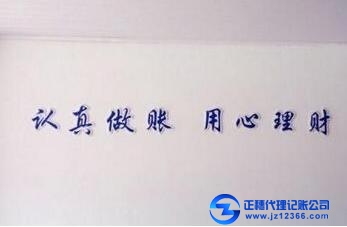 认真做账 用心理财
正穗代理记账公司
www.jz12366.com